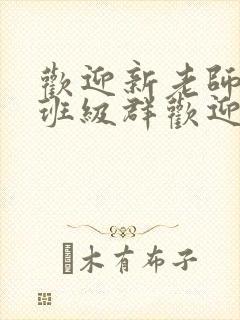 歡迎新老師
班級群歡迎
木有布子